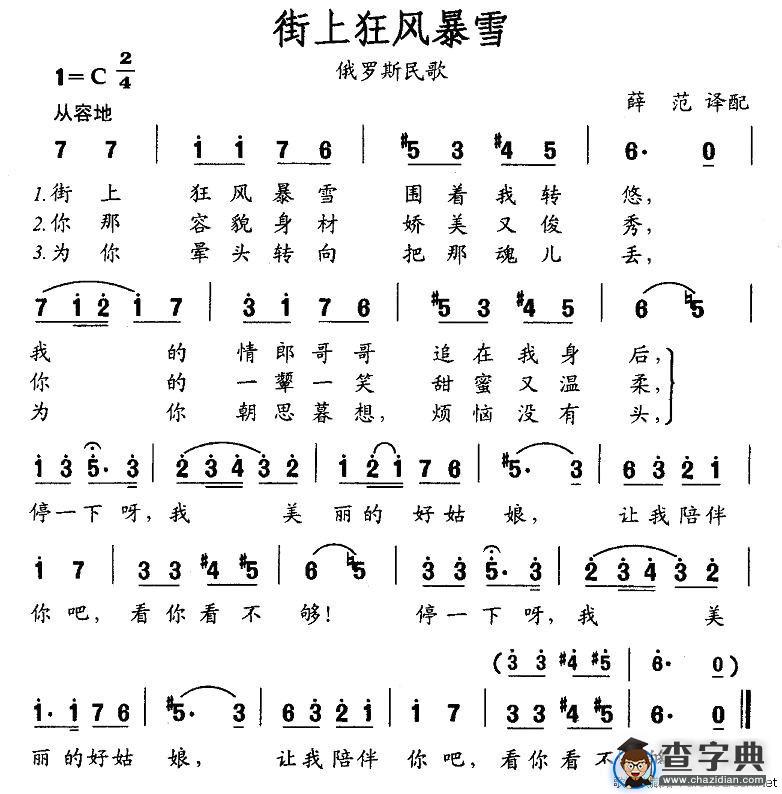 街上狂风暴雪
1=C 2/4
俄罗斯民歌
薛 范 译配
从容地
7 7 | i i 7 6 | #5 3 #4 5 | 6· 0 |
1.街 上 狂 风 暴 雪 围 着 我 转 悠,
2.你 那 容 貌 身 材 娇 美 又 俊 秀,
3.为 你 晕 头 转 向 把 那 魂 儿 丢,
7 i 2 i 7 | 3 i 7 6 | #5 3 #4 5 | 6 ♮5 |
我 的 情 郎 哥 哥 追 在 我 身 后,
你 的 一 颦 一 笑 甜 蜜 又 温 柔,
为 你 朝 思 暮 想, 烦 恼 没 有 头,
i 3 5· 3 | 2 3 4 3 2 | i 2 i 7 6 | #5· 3 | 6 3 2 i |
停 一 下 呀, 我 美 丽 的 好 姑 娘, 让 我 陪 伴
i 7 | 3 3 #4 #5 | 6 ♮5 | 3 3 5· 3 | 2 3 4 3 2 |
你 吧, 看 你 看 不 够! 停 一 下 呀, 我 美
(3 3 #4 #5 | 6· 0)
i· i 7 6 | #5· 3 | 6 3 2 i | i 7 | 3 3 #4 #5 | 6· 0 ‖
丽 的 好 姑 娘, 让 我 陪 伴 你 吧, 看 你 看 不
查字典
www.chazidian.com